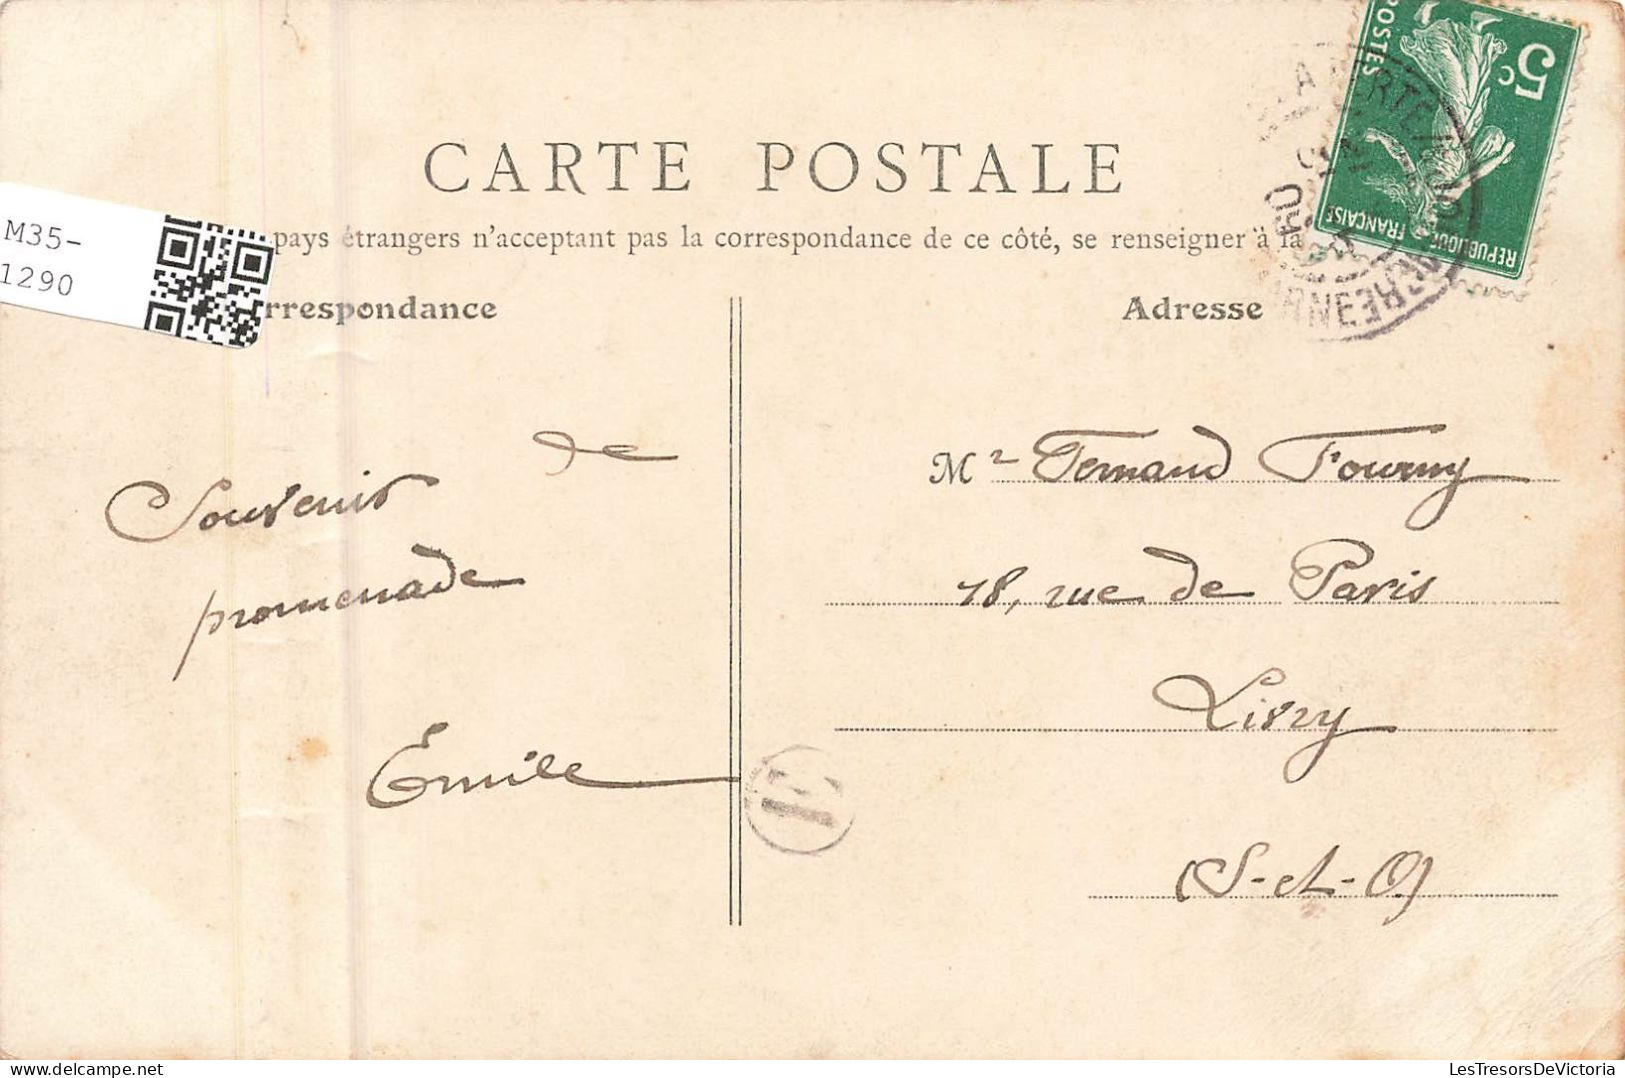 CARTE POSTALE
pays étrangers n'acceptant pas la correspondance de ce côté, se renseigner à la
M35-
1290
rrespondance
Adresse
5c
POSTES
REPUBLIQUE FRANÇAISE
Souvenir de
promenade
Emile
Mr Fernand Fourny
18, rue de Paris
Livry
(S-et-O)
E
LesTresorsDeVictoria